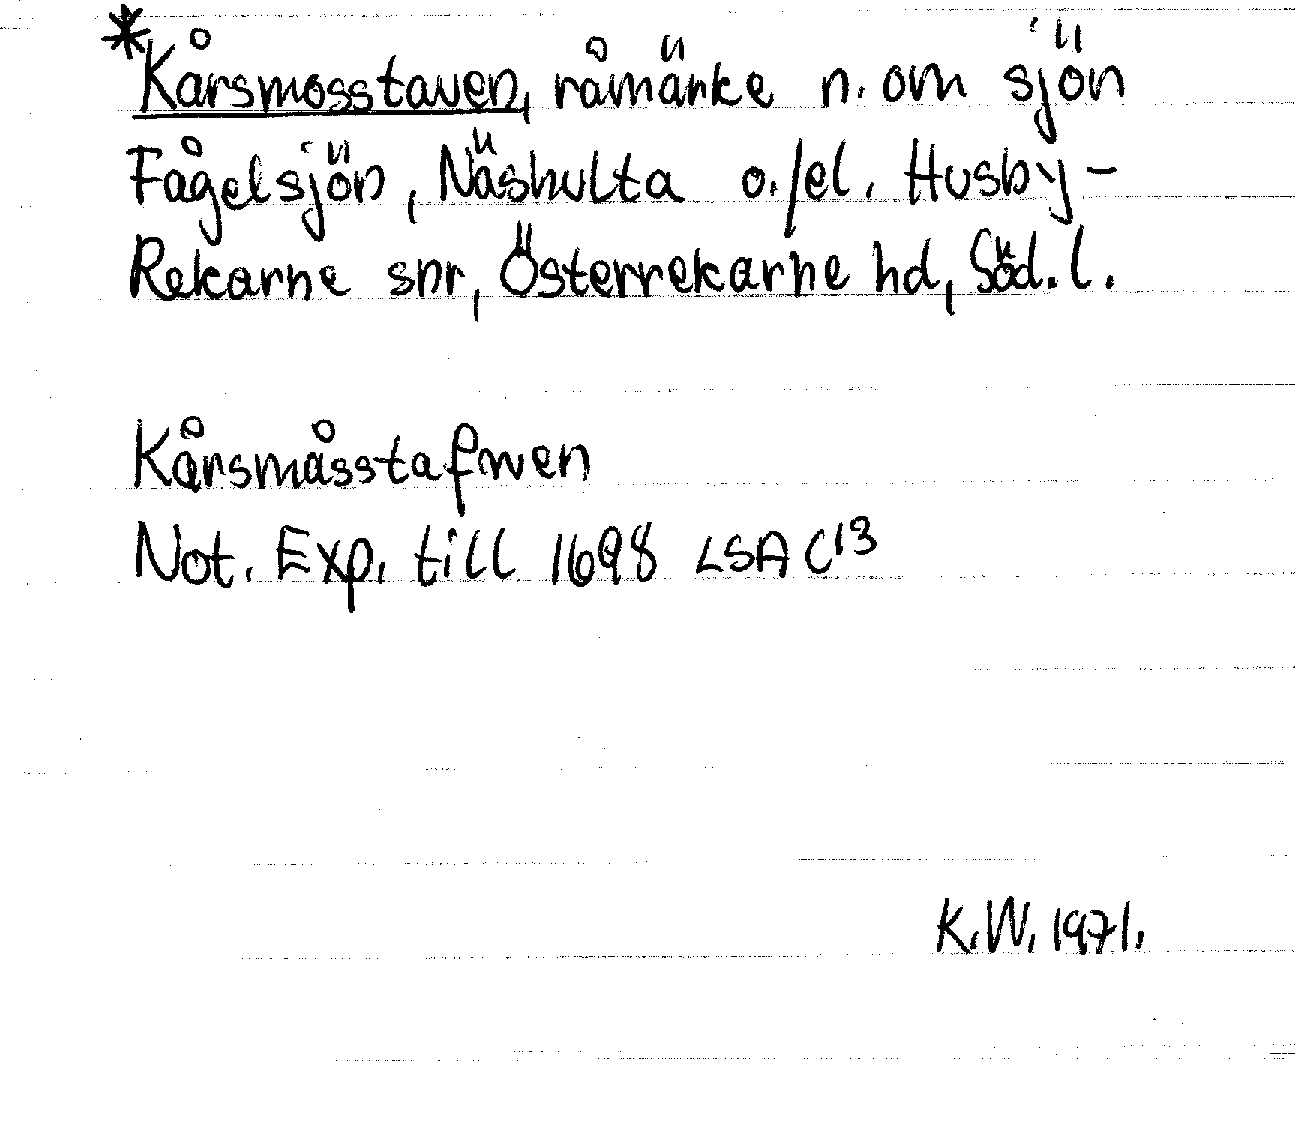 *Kårsmosstaven, råmärke n. om sjön
Fågelsjön, Näshulta o./el. Husby-
Rekarne snr, Österrekarne hd, Söd. l.
Kårsmåsstafwen
Not. Exp. till 1698 LSA C13
K.W. 1971.